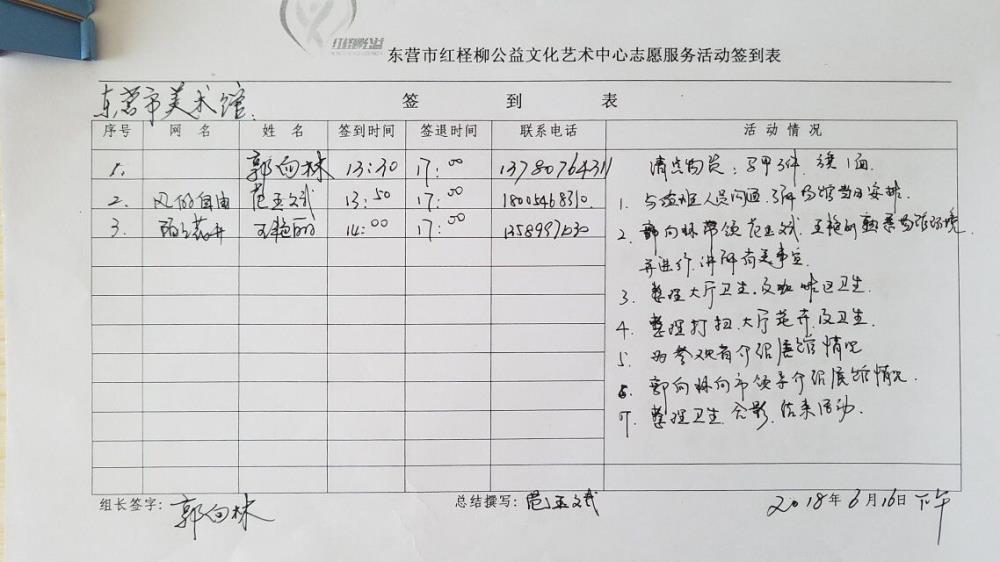 红柽柳公益
东营市红柽柳公益文化艺术中心志愿服务活动签到表
东营市美术馆.
签 到 表
序号 网 名 姓 名 签到时间 签退时间 联系电话 活 动 情 况
1. 郭向林 13:30 17:00 13780764311
2. 风的自由 范玉斌 13:50 17:00 18005468310.
3. 14:00 17:00
清点物资:马甲3件 旗1面.
1. 与值班人员沟通,了解场馆当日安排.
2. 郭向林带领范玉斌.王艳丽熟悉场馆环境
并进行.讲解有关事宜.
3. 整理大厅卫生.及咖啡区卫生.
4. 整理打扫.大厅花卉.及卫生.
5. 为参观者介绍展馆情况
6. 郭向林向市领导介绍展馆情况.
7. 整理卫生.合影.结束活动.
组长签字: 郭向林 总结撰写: 范玉斌 2018年6月16日下午